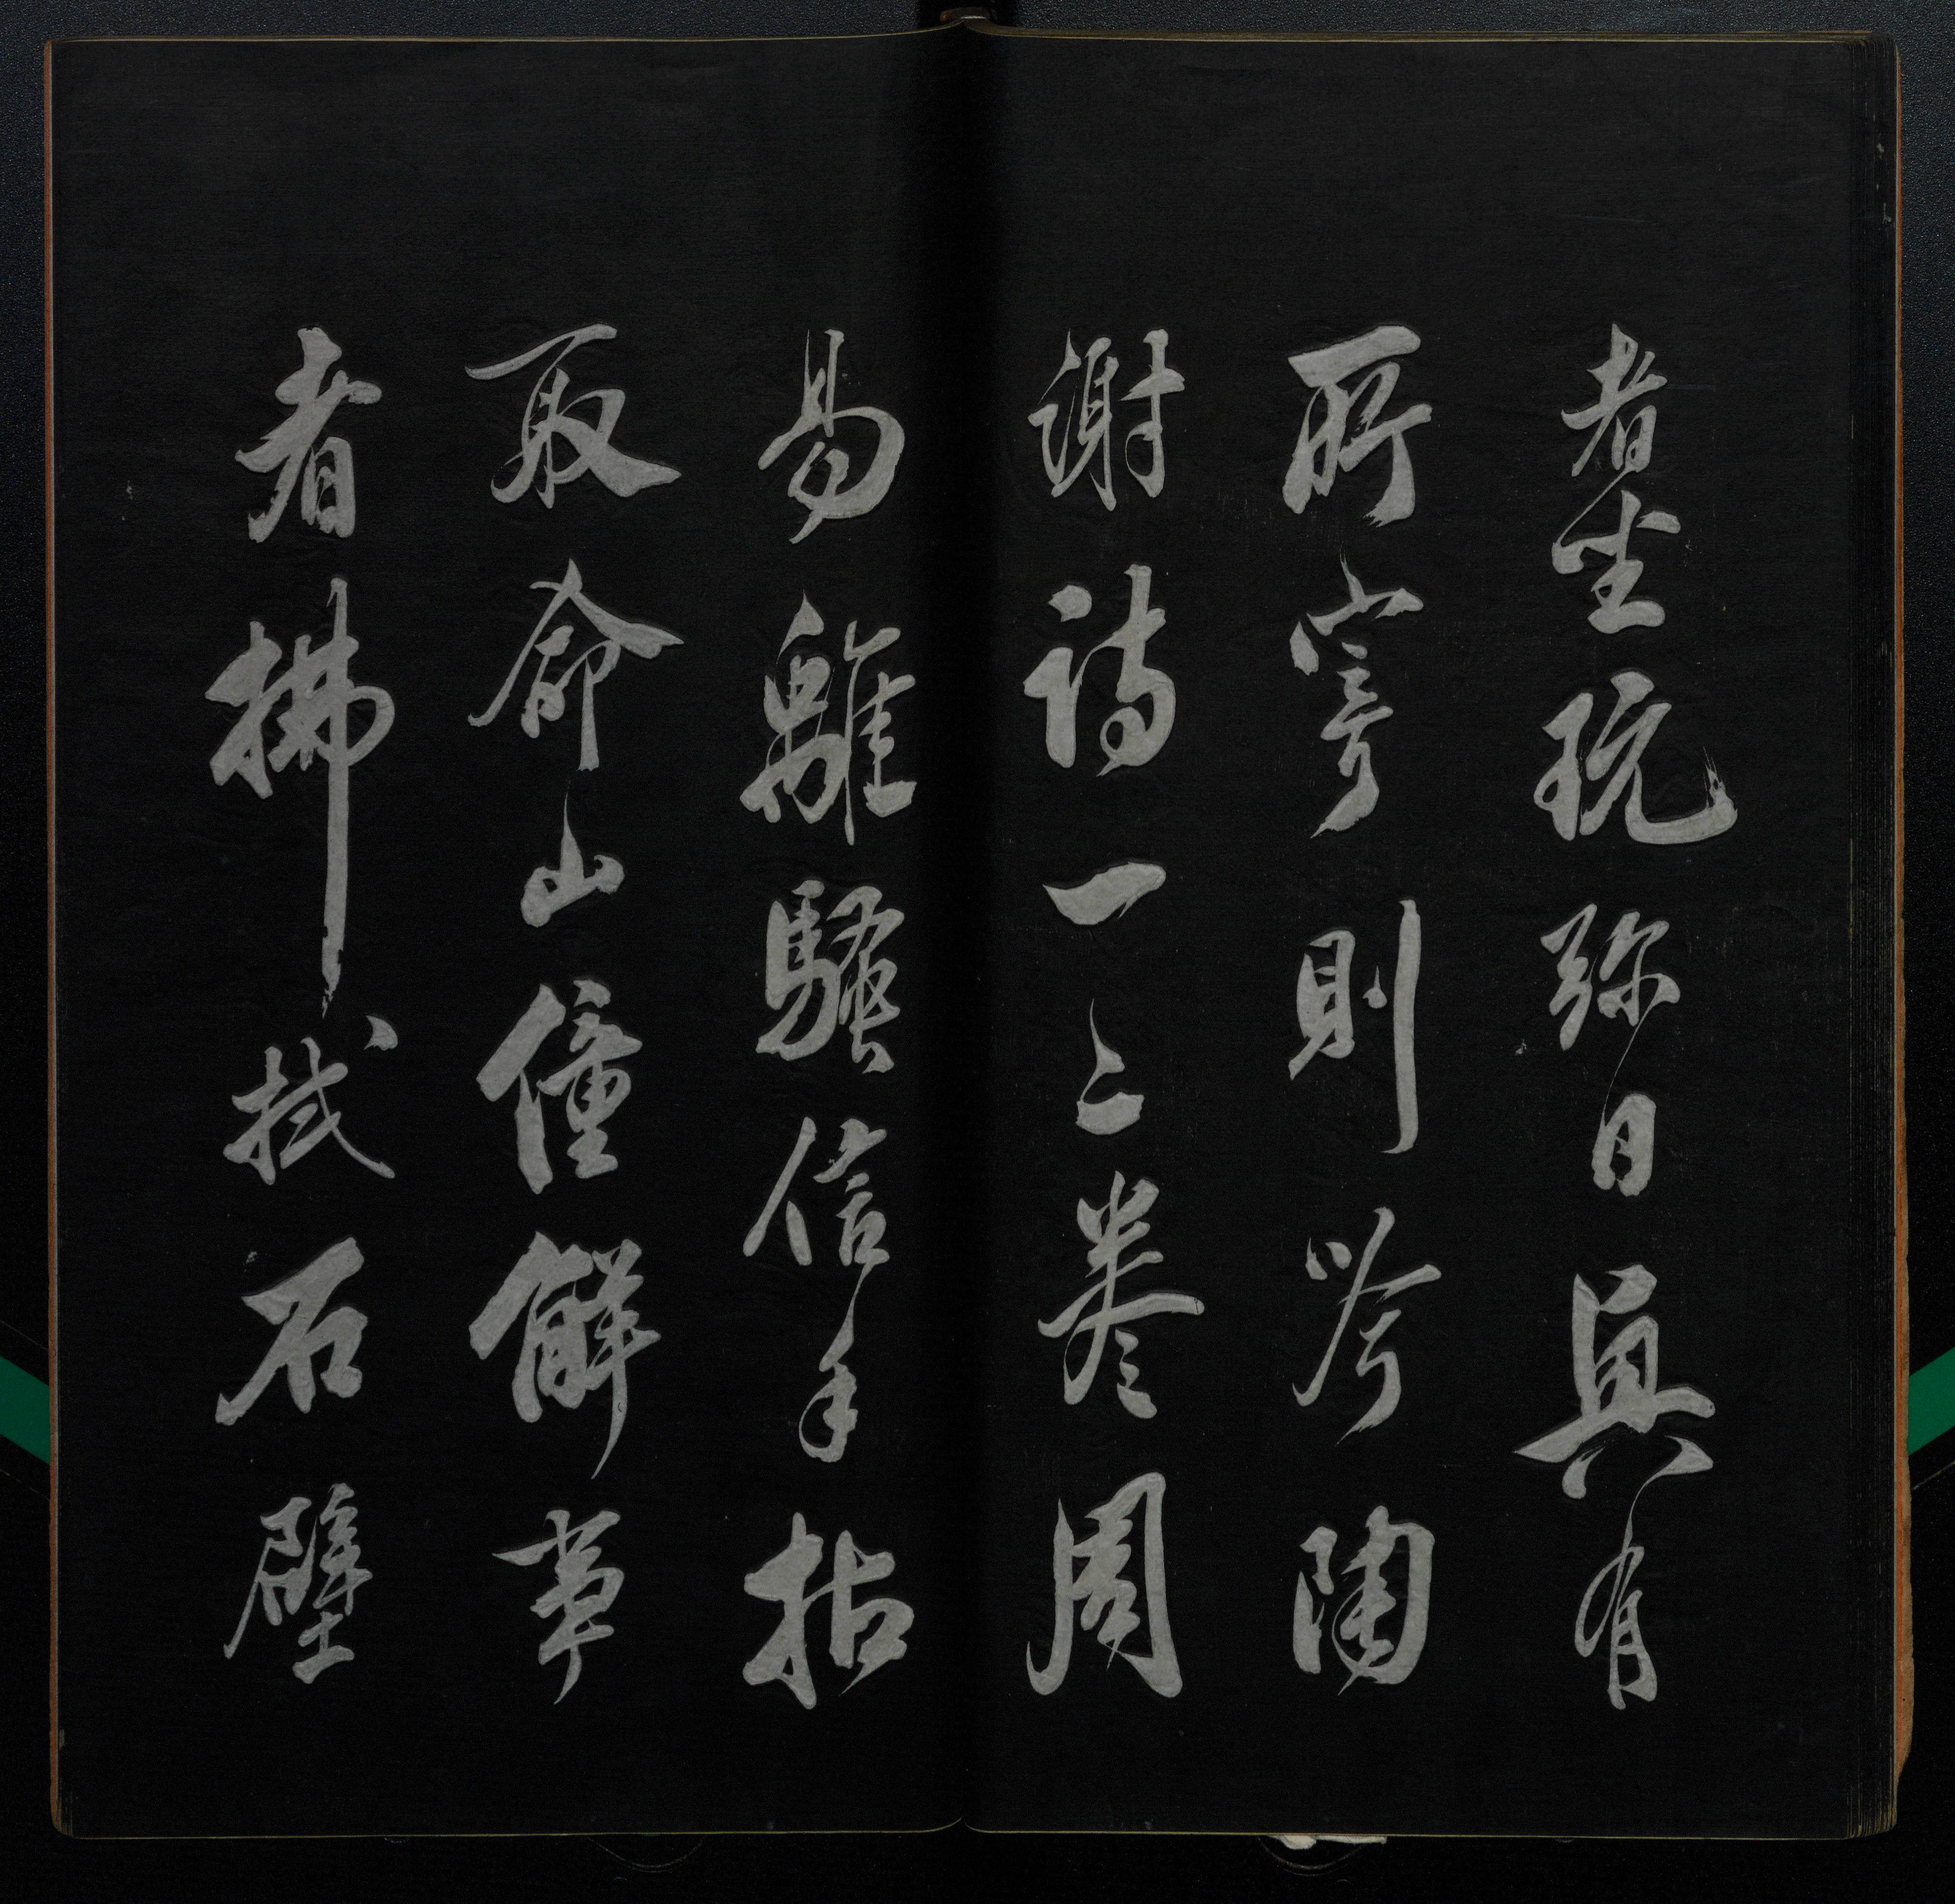 者坐玩弥日興有
所寄則吟陶
謝詩一二卷周
易離騷信手拈
取命山僮解事
者拂拭石壁